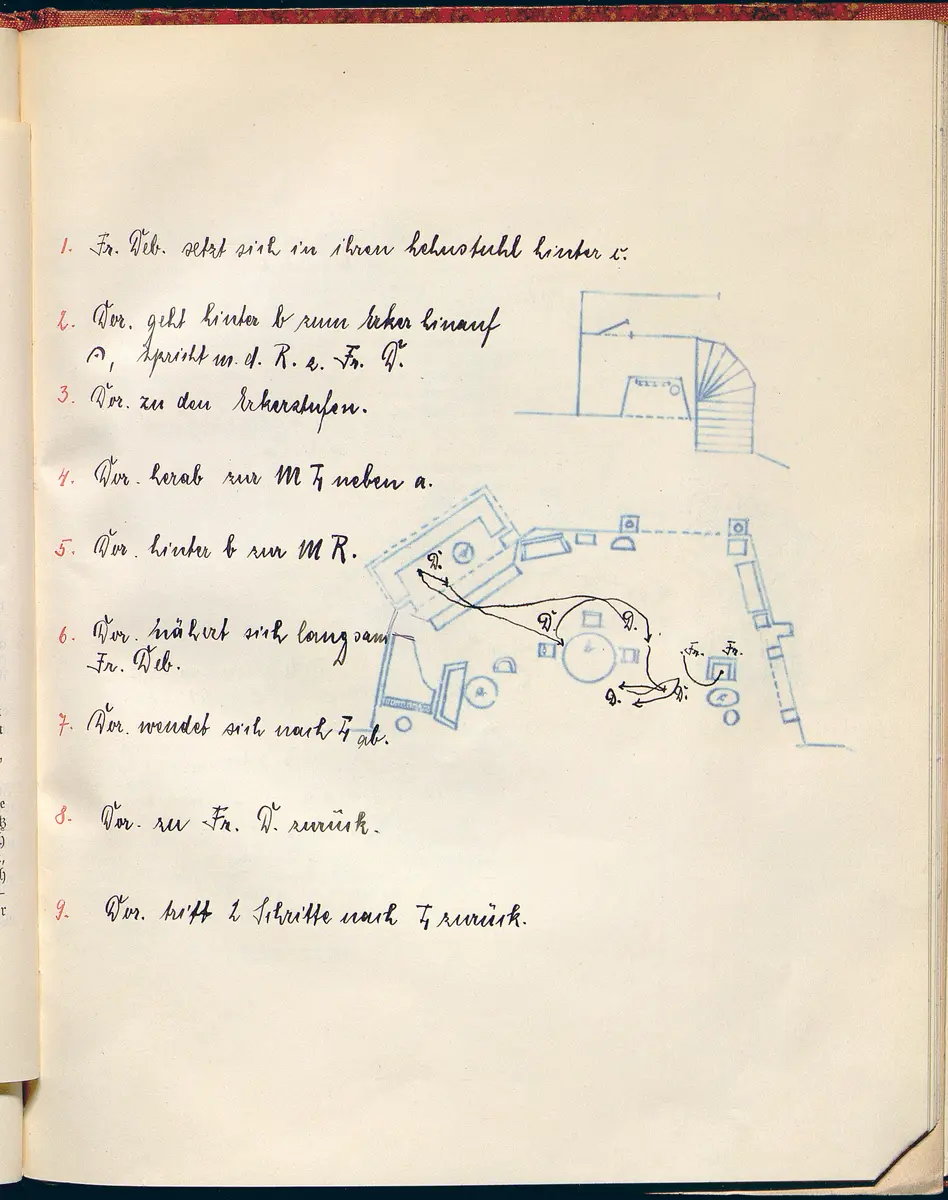 1. Fr. Deb. setzt sich in ihren Lehnstuhl hinter c.
2. Dor. geht hinter b zum Erker hinauf
spricht m. d. R. z. Fr. D.
3. Dor. zu den Erkerstufen.
4. Dor. herab zur M L neben a.
5. Dor. hinter b zur M R.
6. Dor. nähert sich langsam
Fr. Deb.
7. Dor. wendet sich nach L ab.
8. Dor. zu Fr. D. zurück.
9. Dor. tritt 2 Schritte nach L zurück.
D.
D.
D.
Fr.
Fr.
D.
D.